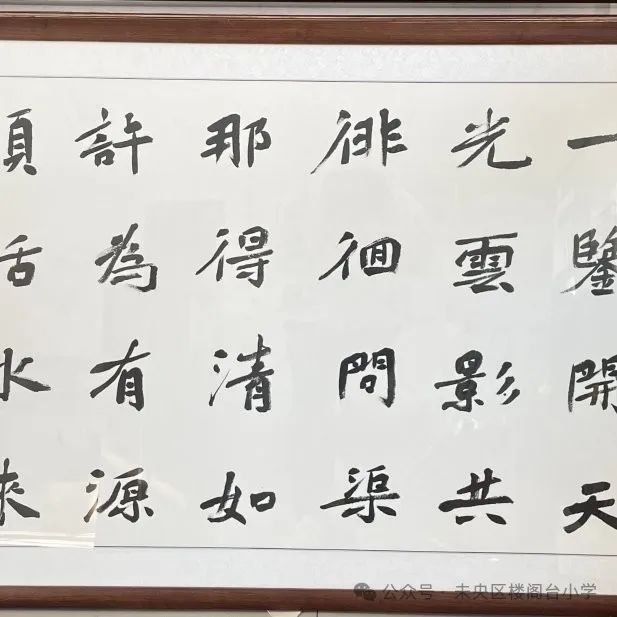 一鑒開天
光雲影共
徘徊問渠
那得清如
許為有源
頭活水來
公众号·未央区楼阁台小学